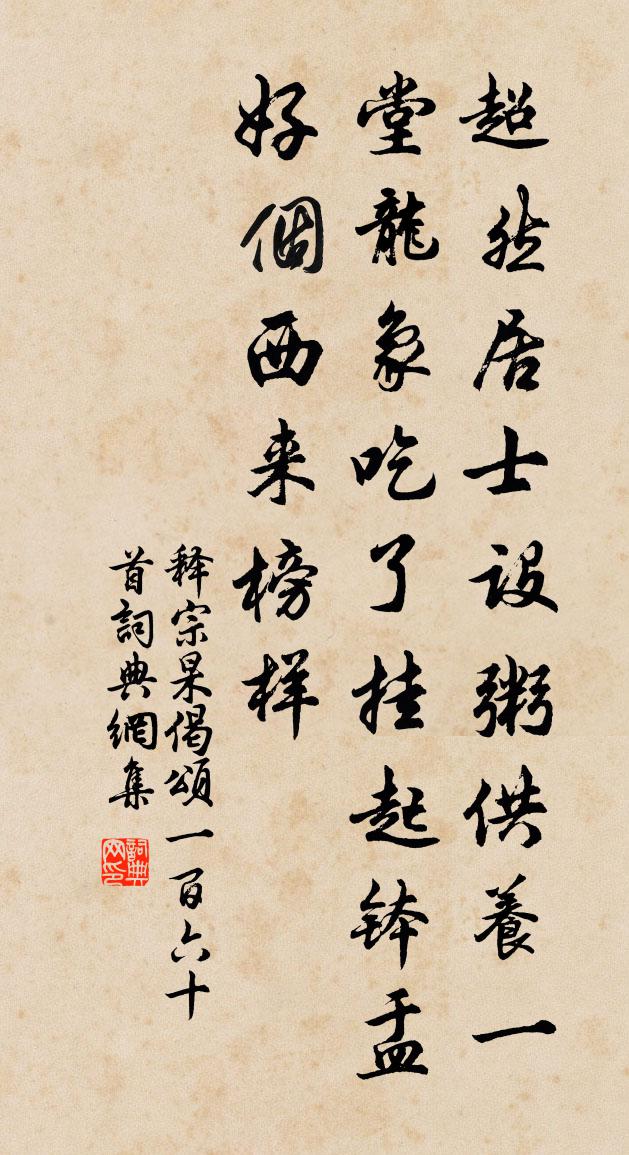 超然居士設粥供養一
堂龍象吃了挂起鉢盂
好個西来榜样
释宗杲偈頌一百六十
首詞典網集
詞典网印